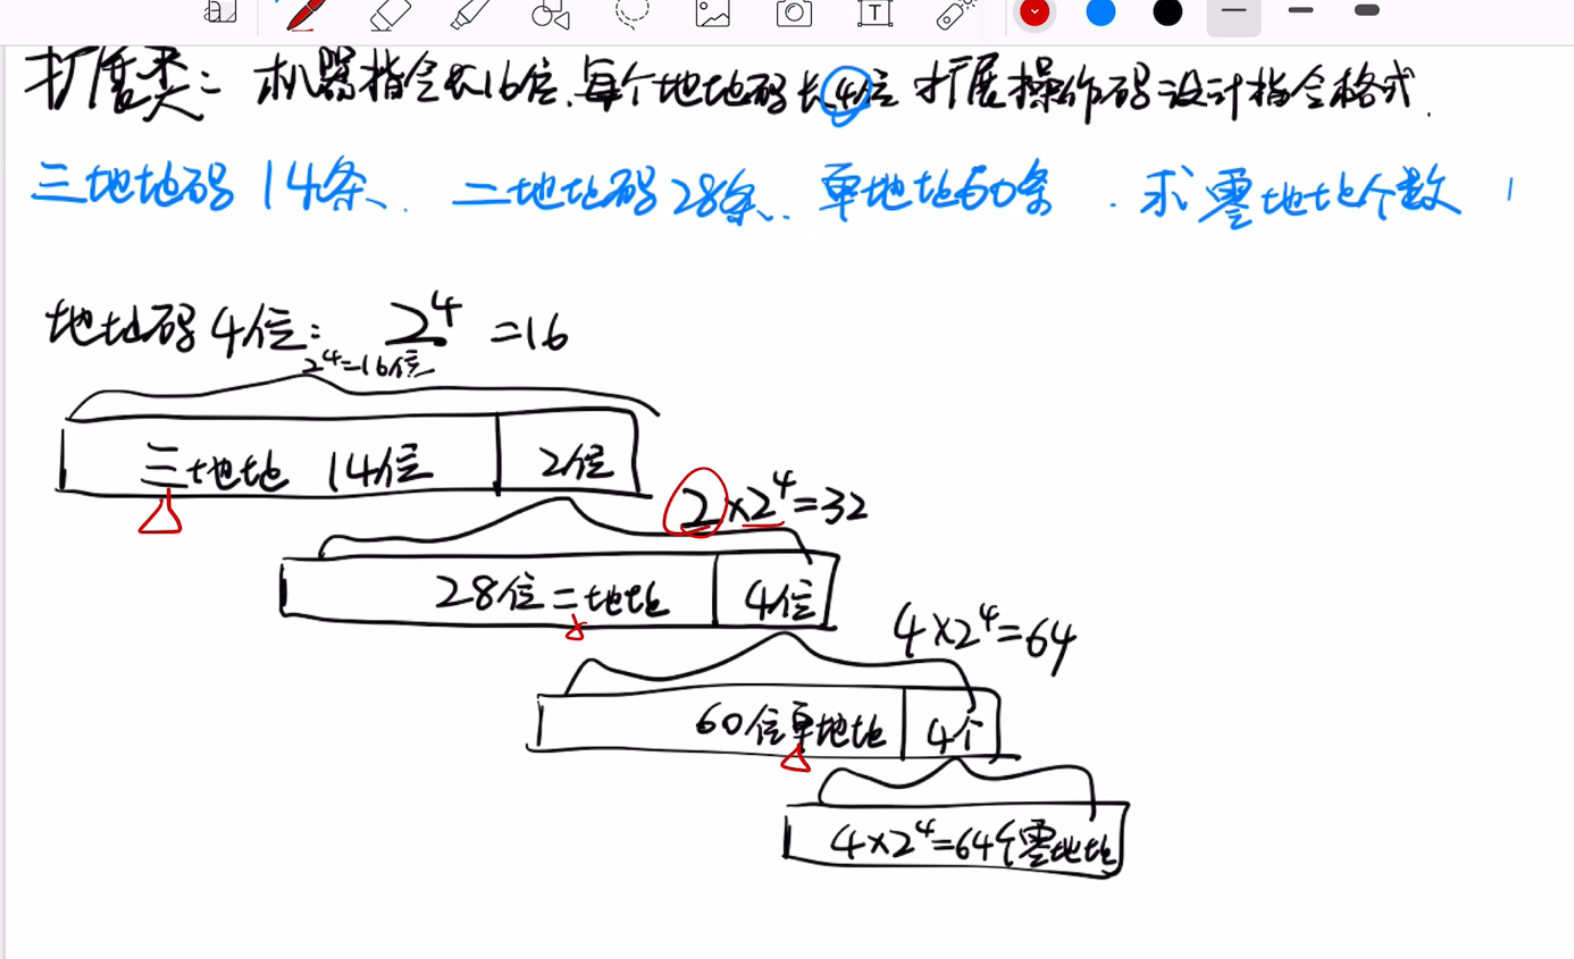 扩展类: 机器指令长16位,每个地址码长4位 扩展操作码设计指令格式.
三地址码14条、二地址码28条、单地址60条.求零地址个数
地址码4位: 2⁴=16
2⁴=16位
三地址 14位 2位
2×2⁴=32
28位二地址 4位
4×2⁴=64
60位单地址 4个
4×2⁴=64个零地址